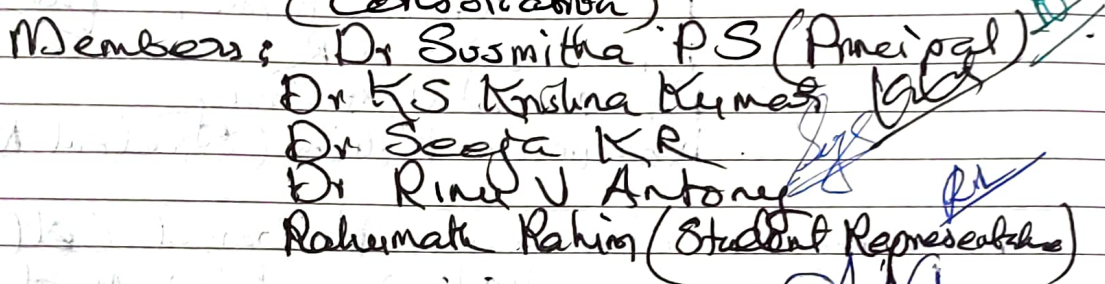 (Consolidation)
Members: Dr Susmitha P S (Principal)
Dr K S Krishna Kumar
Dr Seeja K R
Dr Rinu V Antony
Rahumath Rahim (Student Representative)